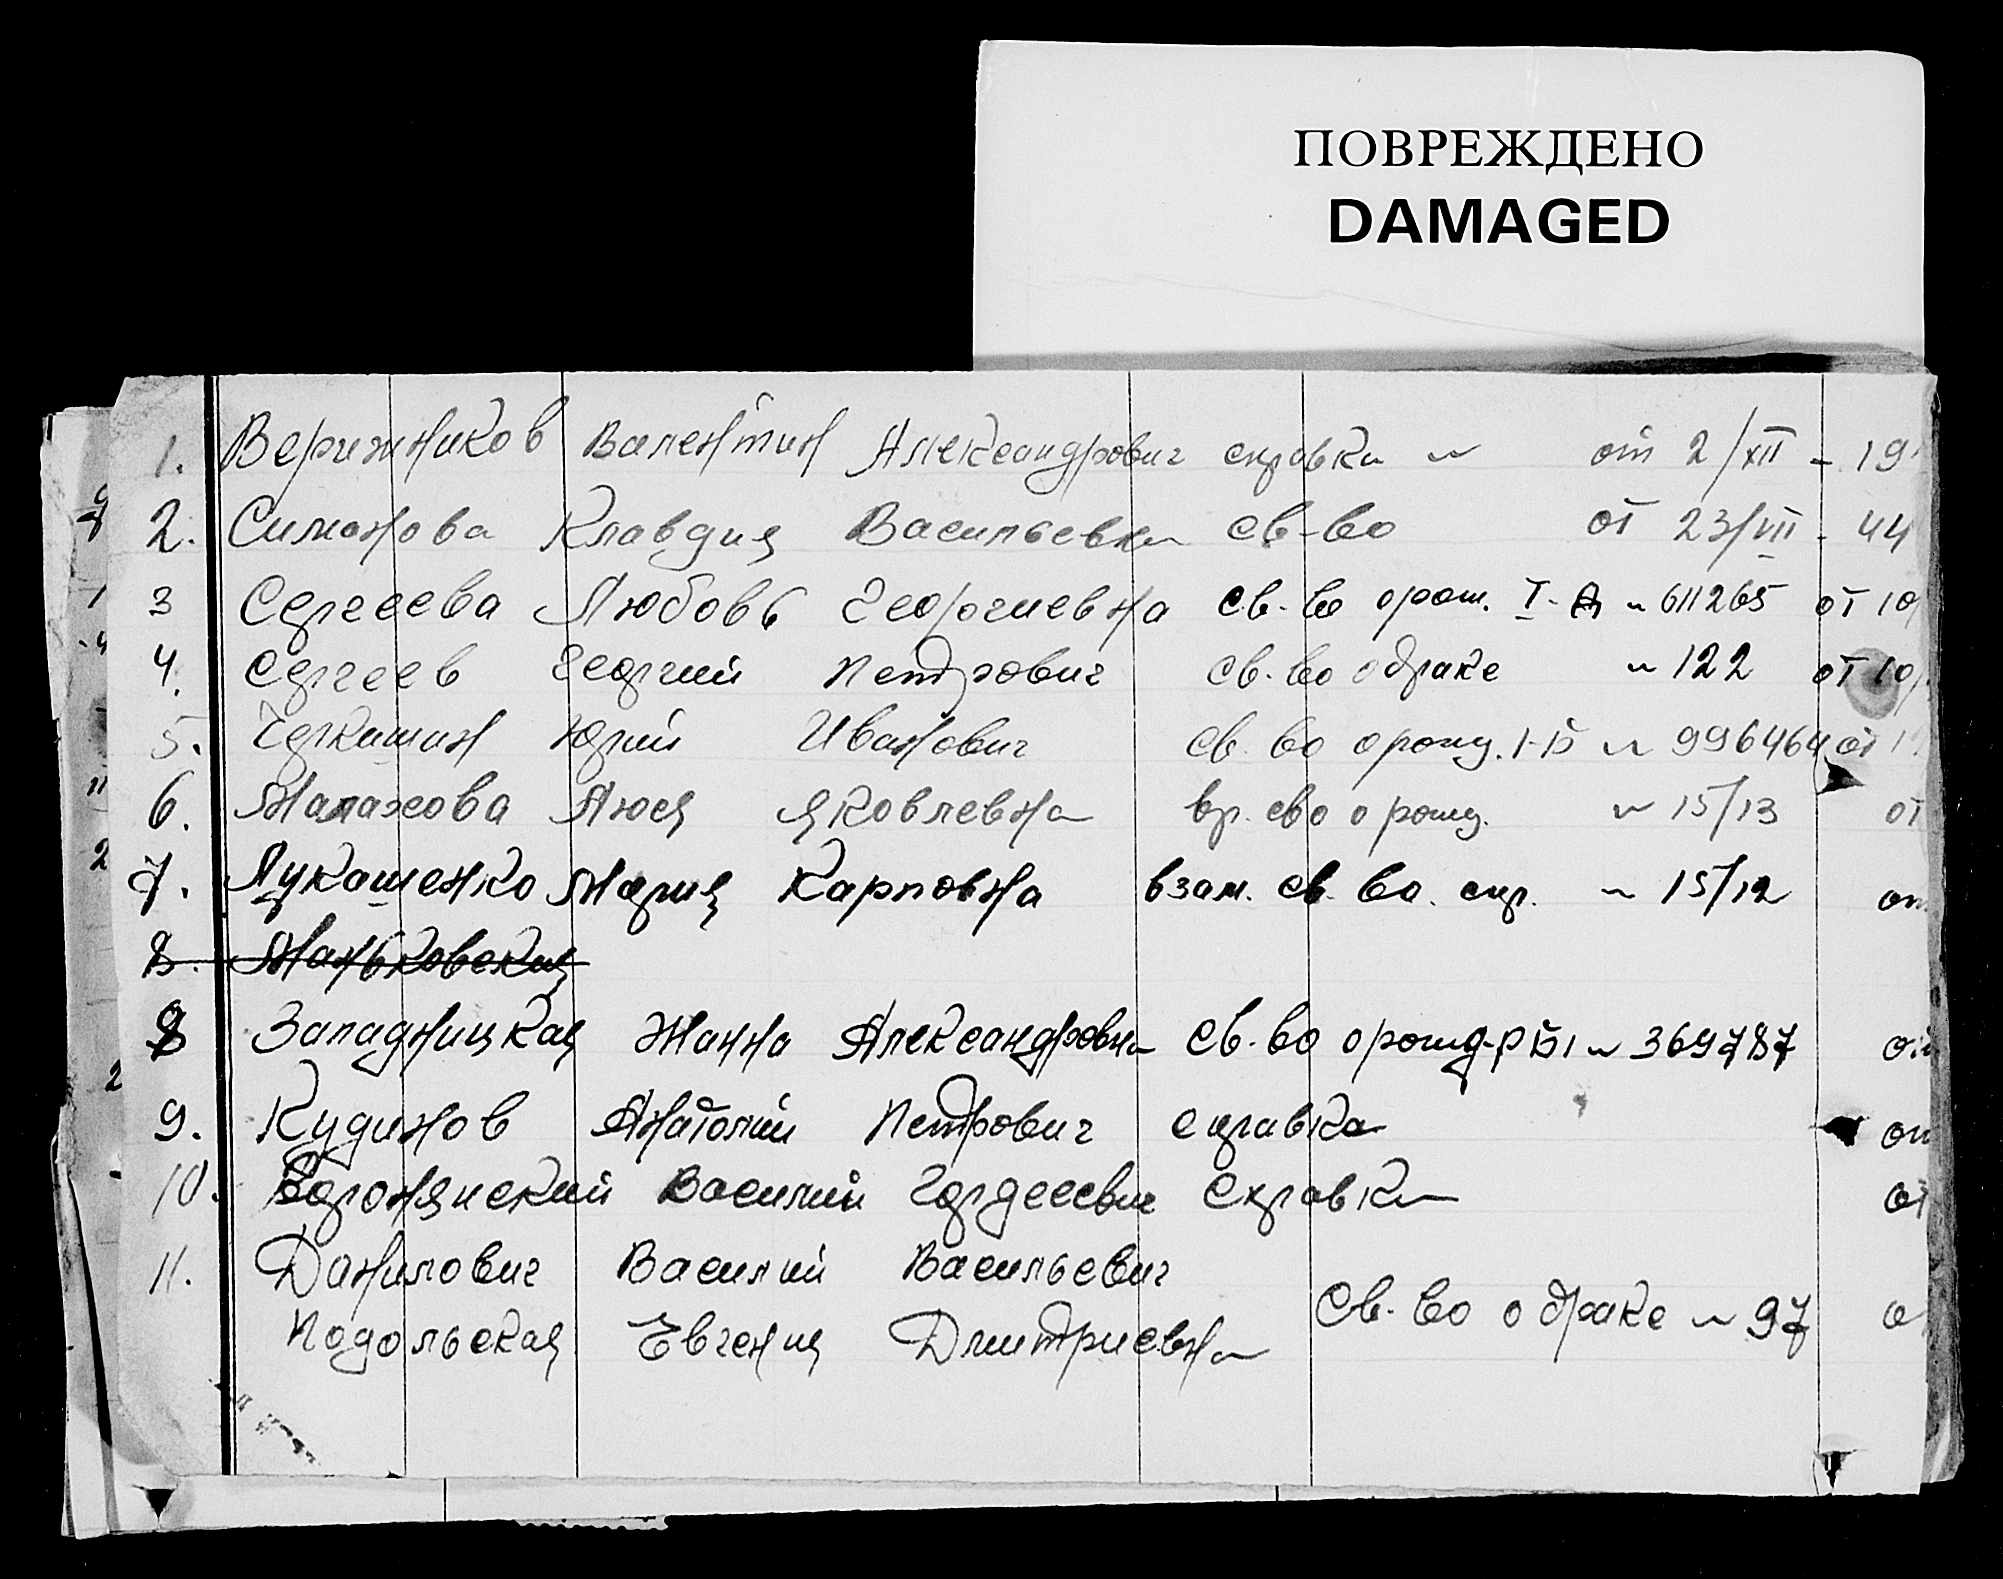 ПОВРЕЖДЕНО
DAMAGED
1. Верижников Валентин Александрович справка № от 2/XII - 19
2. Симонова Клавдия Васильевна св-во от 23/VII - 44
3 Сергеева Любовь Георгиевна св-во о рож. I-А № 611265 от 10
4. Сергеев Георгий Петрович св-во о браке № 122 от 10/
5. Черкишин Юрий Иванович св-во о рожд. I-Б № 996464 от 1
6. Малахова Люся Яковлевна вр. св-во о рожд. № 15/13 от
7. Лукашенко Мария Карповна взам. св-ва. спр. № 15/12 от
8. Маньковская
8 Западницкая Жанна Александровна св-во о рожд- № 369787 от
9. Кудинов Анатолий Петрович справка от
10. Василий Гордеевич справка от
11. Данилович Василий Васильевич
Подольская Евгения Дмитриевна св-во о браке № 97 о